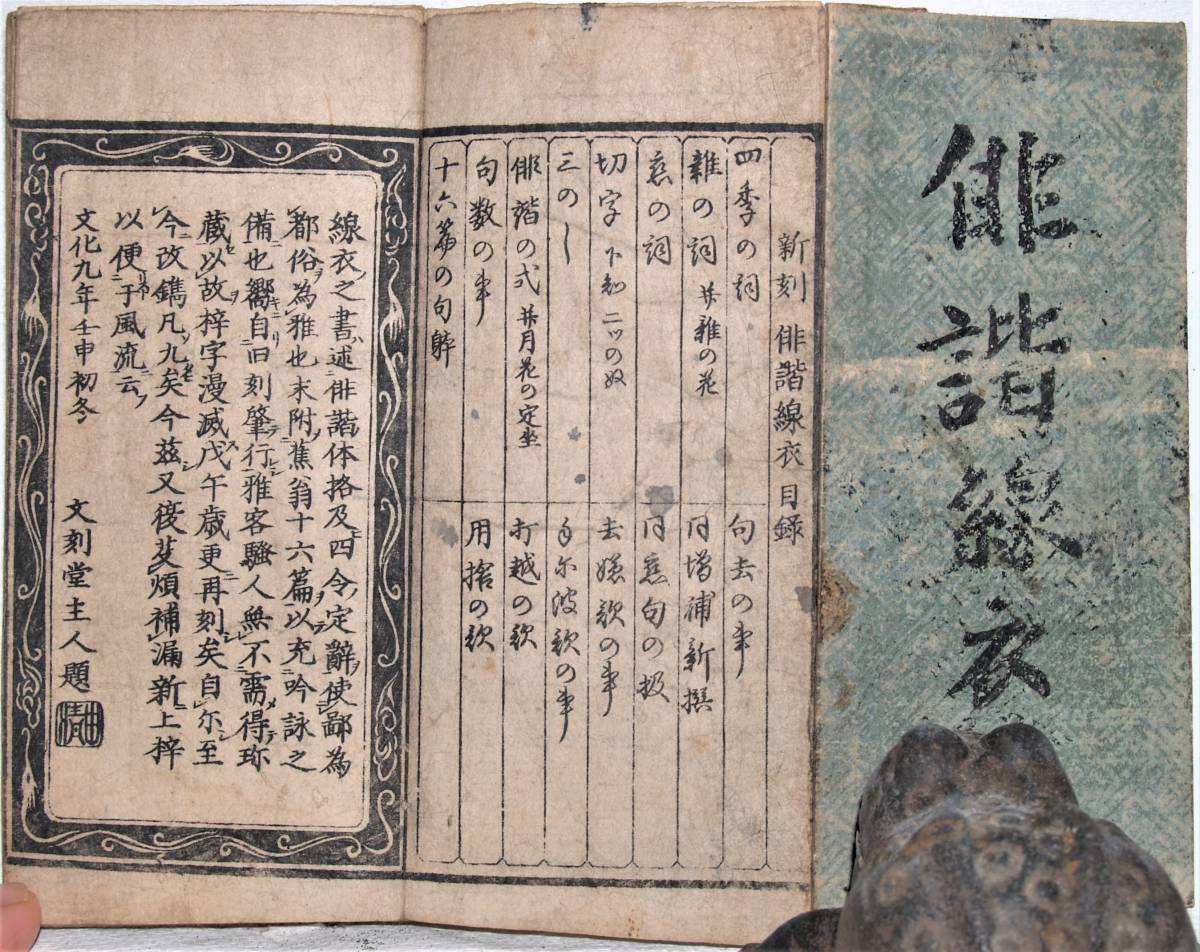 俳諧線衣
新刻 俳諧線衣 目録
四季の詞
雜の詞 并雜の花
恋の詞
切字 下知 二ツの奴
三のし
俳諧の式 并月花の定坐
句数の事
十六篇の句躰
句去の事
同増補新撰
同恋句の扱
去嫌歌の事
手尓波歌の事
打越の歌
用捨の歌
線衣之書述俳諧体挌及四令定辭使鄙為
都俗為雅也末附蕉翁十六篇以充吟詠之
備也嚮自旧刻肇行雅客騒人無不需得珎
蔵以故梓字漫滅戊午歳更再刻矣自尓至
今改鐫凡九矣今茲又復芟煩補漏新上梓
以便于風流云
文化九年壬申初冬 文刻堂主人題